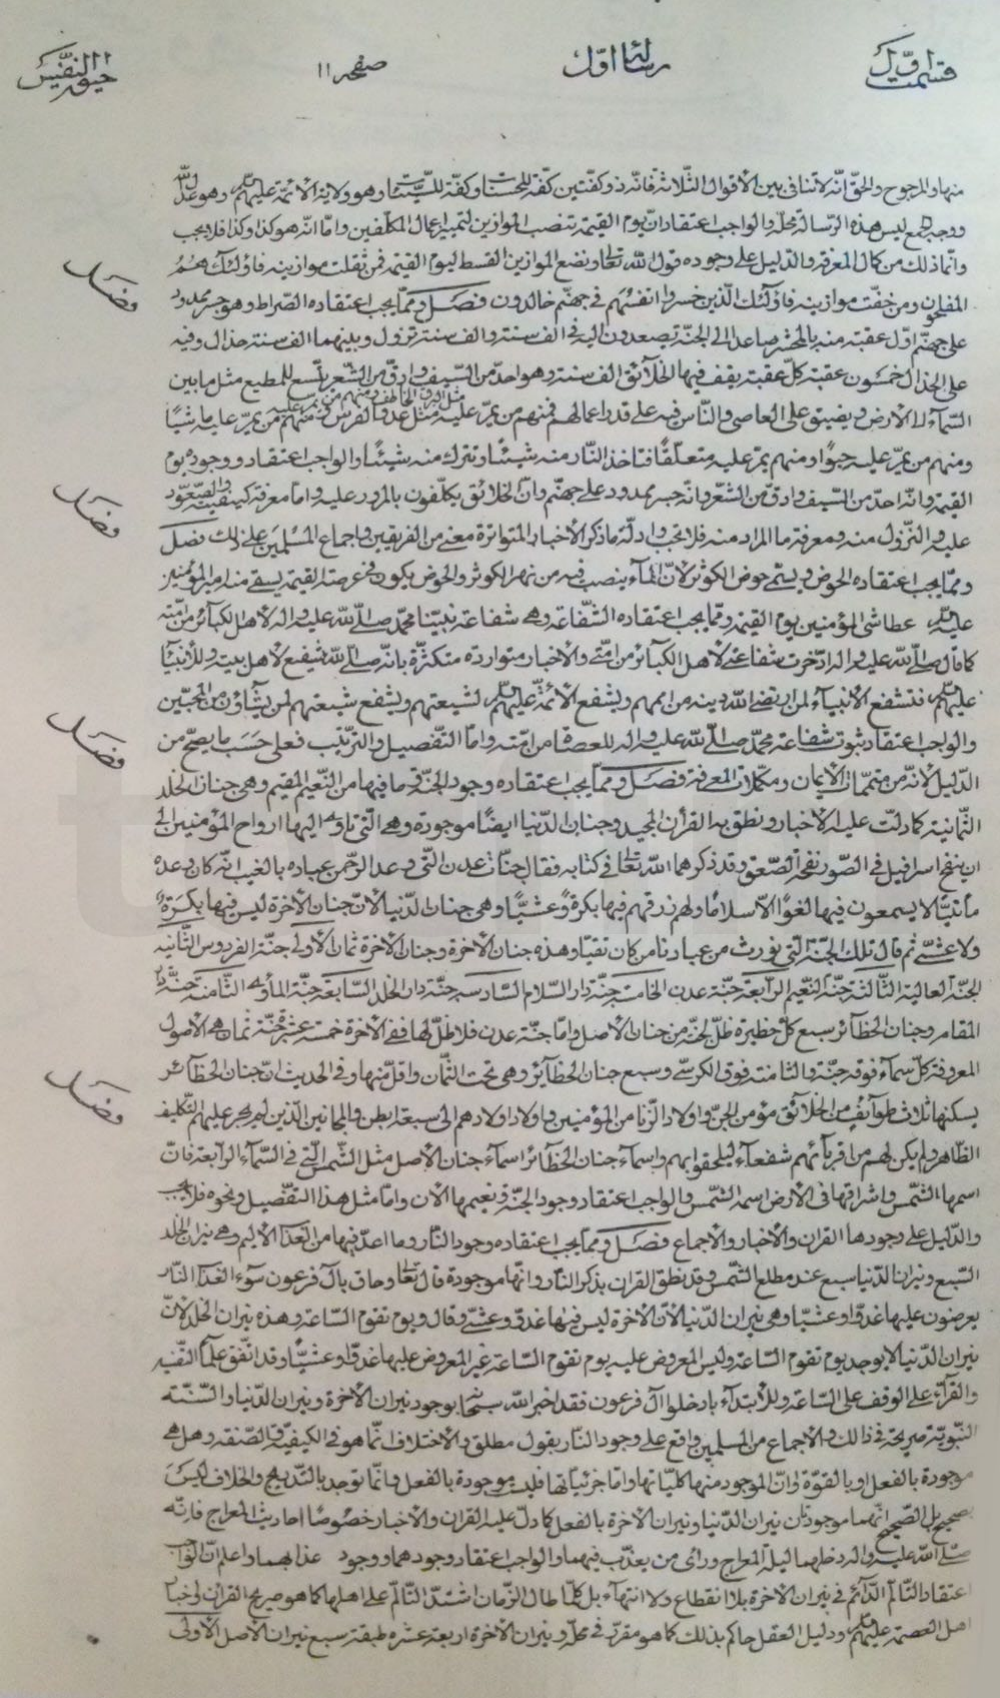 قسمت اوّل
رسالۀ اوّل
صفحه ١١
حيوة النفس
منها والمرجوح والحق انّه لا تنافى بين الاقوال الثلاثة فانه ذو كفّتين كفّة للحسنات وكفّة للسّيئات وهو ولاية الائمة عليهم السلم وهو عدل الله
ووجه الجمع ليس هذه الرّسالة محلّه والواجب اعتقاد انّ يوم القيمة تنصب الموازين لتمييز اعمال المكلّفين وامّا انّه هو كذا وكذا فلا يجب
وانما ذلك من كمال المعرفة والدليل على وجوده قول الله تعالى ونضع الموازين القسط ليوم القيمة فمن ثقلت موازينه فاولئك هم
فصل
المفلحون ومن خفّت موازينه فاولئك الّذين خسروا انفسهم فى جهنّم خالدون فصل وممّا يجب اعتقاده الصّراط وهو جسر ممدود
على جهنّم اوّل عقبة منه بالمحشر صاعدا الى الجنّة يصعدون اليه فى الف سنة والف سنة نزول وبينهما الف سنة حذال وفيه
على الحذال خمسون عقبة كلّ عقبة يقف فيها الخلائق الف سنة وهو احدّ من السّيف وادقّ من الشّعر يتّسع للمطيع مثل ما بين
السّمآء والارض ويضيق على العاصى والنّاس فيه على قدر اعمالهم فمنهم من يمرّ عليه مثل البرق الخاطف ومنهم من يمرّ عليه مثل عدو الفرس ومنهم من يمرّ عليه ماشيًا
ومنهم من يمرّ عليه حبوًا ومنهم يمرّ عليه متعلّقًا فتاخذ النّار منه شيئًا وتترك منه شيئًا والواجب اعتقاد وجوده يوم
القيمة وانّه احدّ من السّيف وادقّ من الشّعر وانّه جسر ممدود على جهنّم وانّ الخلائق يكلّفون بالمرور عليه وامّا معرفة كيفيّة الصّعود
فصل
عليه والنّزول منه ومعرفة ما المراد منه فلا تجب وادلّة ما ذكر الاخبار المتواترة معنى من الفريقين واجماع المسلمين على ذلك فصل
وممّا يجب اعتقاده الحوض ويسمّى حوض الكوثر لانّ المآء ينصب فيه من نهر الكوثر والحوض يكون فى عرصة القيمة يسقى منه امير المؤمنين
عليه السلم عطاشى المؤمنين يوم القيمة وممّا يجب اعتقاده الشّفاعة وهى شفاعة نبيّنا محمّد صلّى الله عليه واله لاهل الكبائر من امّته
كما قال صلّى الله عليه واله ادّخرت شفاعتى لاهل الكبائر من امّتى والاخبار متواردة متكثّرة بانّه صلّى الله يشفع لاهل بيته وللانبيآء
عليهم السلم فتشفع الانبيآء لمن ارتضى الله دينه من اممهم ويشفع الائمّة عليهم السلم لشيعتهم ويشفع شيعتهم لمن يشآؤن من المحبّين
فصل
والواجب اعتقاد ثبوت شفاعة محمّد صلّى الله عليه واله للعصاة من امّته وامّا التّفصيل والترتيب فعلى حسب ما يصحّ من
الدّليل لانّه من متمّمات الايمان ومكمّلات المعرفة فصل وممّا يجب اعتقاده وجود الجنّة وما فيها من النّعيم المقيم وهى جنان الخلد
الثّمانية كما دلّت عليه الاخبار ونطق به القرآن المجيد وجنان الدّنيا ايضًا موجودة وهى الّتى تاوى اليها ارواح المؤمنين الى
ان ينفخ اسرافيل فى الصّور نفخة الصّعق وقد ذكرهما الله تعالى فى كتابه فقال جنّات عدن الّتى وعد الرّحمن عباده بالغيب انّه كان وعده
ماتيًّا لا يسمعون فيها لغوًا الّا سلامًا ولهم رزقهم فيها بكرة وعشيًّا وهى جنان الدّنيا لانّ جنان الاخرة ليس فيها بكرة
ولا عشىّ ثم قال تلك الجنّة الّتى نورث من عبادنا من كان تقيّا وهذه جنان الاخرة وجنان الاخرة ثمان الاولى جنّة الفردوس الثّانية
الجنّة العالية الثّالثة جنّة النّعيم الرّابعة جنّة عدن الخامسة جنّة دار السّلام السّادسة جنّة دار الخلد السّابعة جنّة المأوى الثّامنة جنّة دار
المقامة وجنان الحظآئر سبع كلّ حظيرة ظلّ لجنّة من جنان الاصل وامّا جنّة عدن فلا ظلّ لها ففى الاخرة خمسة عشر جنّة ثمان هى الاصول
المعروفة كلّ سمآء فوقه جنّة والثّامنة فوق الكرسىّ وسبع جنان الحظآئر وهى تحت الثّمان واقلّ منها وفى الحديث انّ جنان الحظآئر
فصل
يسكنها ثلاث طوآئف من الخلائق مؤمن الجنّ واولاد الزّنا من المؤمنين واولاد اولادهم الى سبعة ابطن والمجانين الّذين لم يجر عليهم التّكليف
الظّاهر ولم يكن لهم من اقربآئهم شفعآء ليلحقوا بهم واسمآء جنان الحظآئر اسمآء جنان الاصل مثل الشّمس الّتى فى السّمآء الرّابعة فانّ
اسمها الشّمس واشراقها فى الارض اسمه الشّمس والواجب اعتقاد وجود الجنّة ونعيمها الآن وامّا مثل هذا التّفصيل ونحوه فلا يجب
والدّليل على وجودها القران والاخبار والاجماع فصل وممّا يجب اعتقاده وجود النّار وما اعدّ فيها من العذاب الاليم وهى نيران الخلد
السّبع ونيران الدّنيا سبع عند مطلع الشّمس وقد نطق القران بذكر النّار وانّها موجودة قال تعالى وحاق بآل فرعون سوء العذاب النّار
يعرضون عليها غدوًّا وعشيًّا وهى نيران الدّنيا لانّ الاخرة ليس فيها غدوّ وعشىّ وقال ويوم تقوم السّاعة وهذه نيران الخلد لانّ
نيران الدّنيا لا يوجد يوم تقوم السّاعة وليس المعروض عليه يوم تقوم السّاعة غير المعروض عليها غدوّا وعشيًّا وقد اتّفق علمآء التّفسير
والقرآء على الوقف على السّاعة وللابتدآء بادخلوا آل فرعون فقد اخبر الله سبحانه بوجود نيران الاخرة ونيران الدّنيا والسّنّة
النّبويّة صريحة فى ذلك والاجماع من المسلمين واقع على وجود النّار بقول مطلق والاختلاف انّما هو فى الكيفيّة والصّفة وهل هى
موجودة بالفعل او بالقوّة وانّ الموجود منها كلّيّاتها وامّا جزئيّاتها فليست موجودة بالفعل وانّما توجد بالتّدريج والخلاف ليس
بصحيح بل الصّحيح انّهما موجودتان نيران الدّنيا ونيران الاخرة بالفعل كما دلّ عليه القران والاخبار خصوصًا احاديث المعراج فانّه
صلّى الله عليه واله دخلهما ليلة المعراج وراى من يعذّب فيهما والواجب اعتقاد وجودهما ووجود عذابهما واعلم انّ الواجب
اعتقاد التّألّم الدّآئم فى نيران الاخرة بلا انقطاع ولا انتهآء بل كلّما طال الزّمان اشتدّ التّألّم على اهلها كما هو صريح القران واخبار
اهل العصمة عليهم السلم ودليل العقل حاكم بذلك كما هو مقرّر فى محلّه ونيران الاخرة اربعة عشره طبقة سبع نيران الاصل الاولى